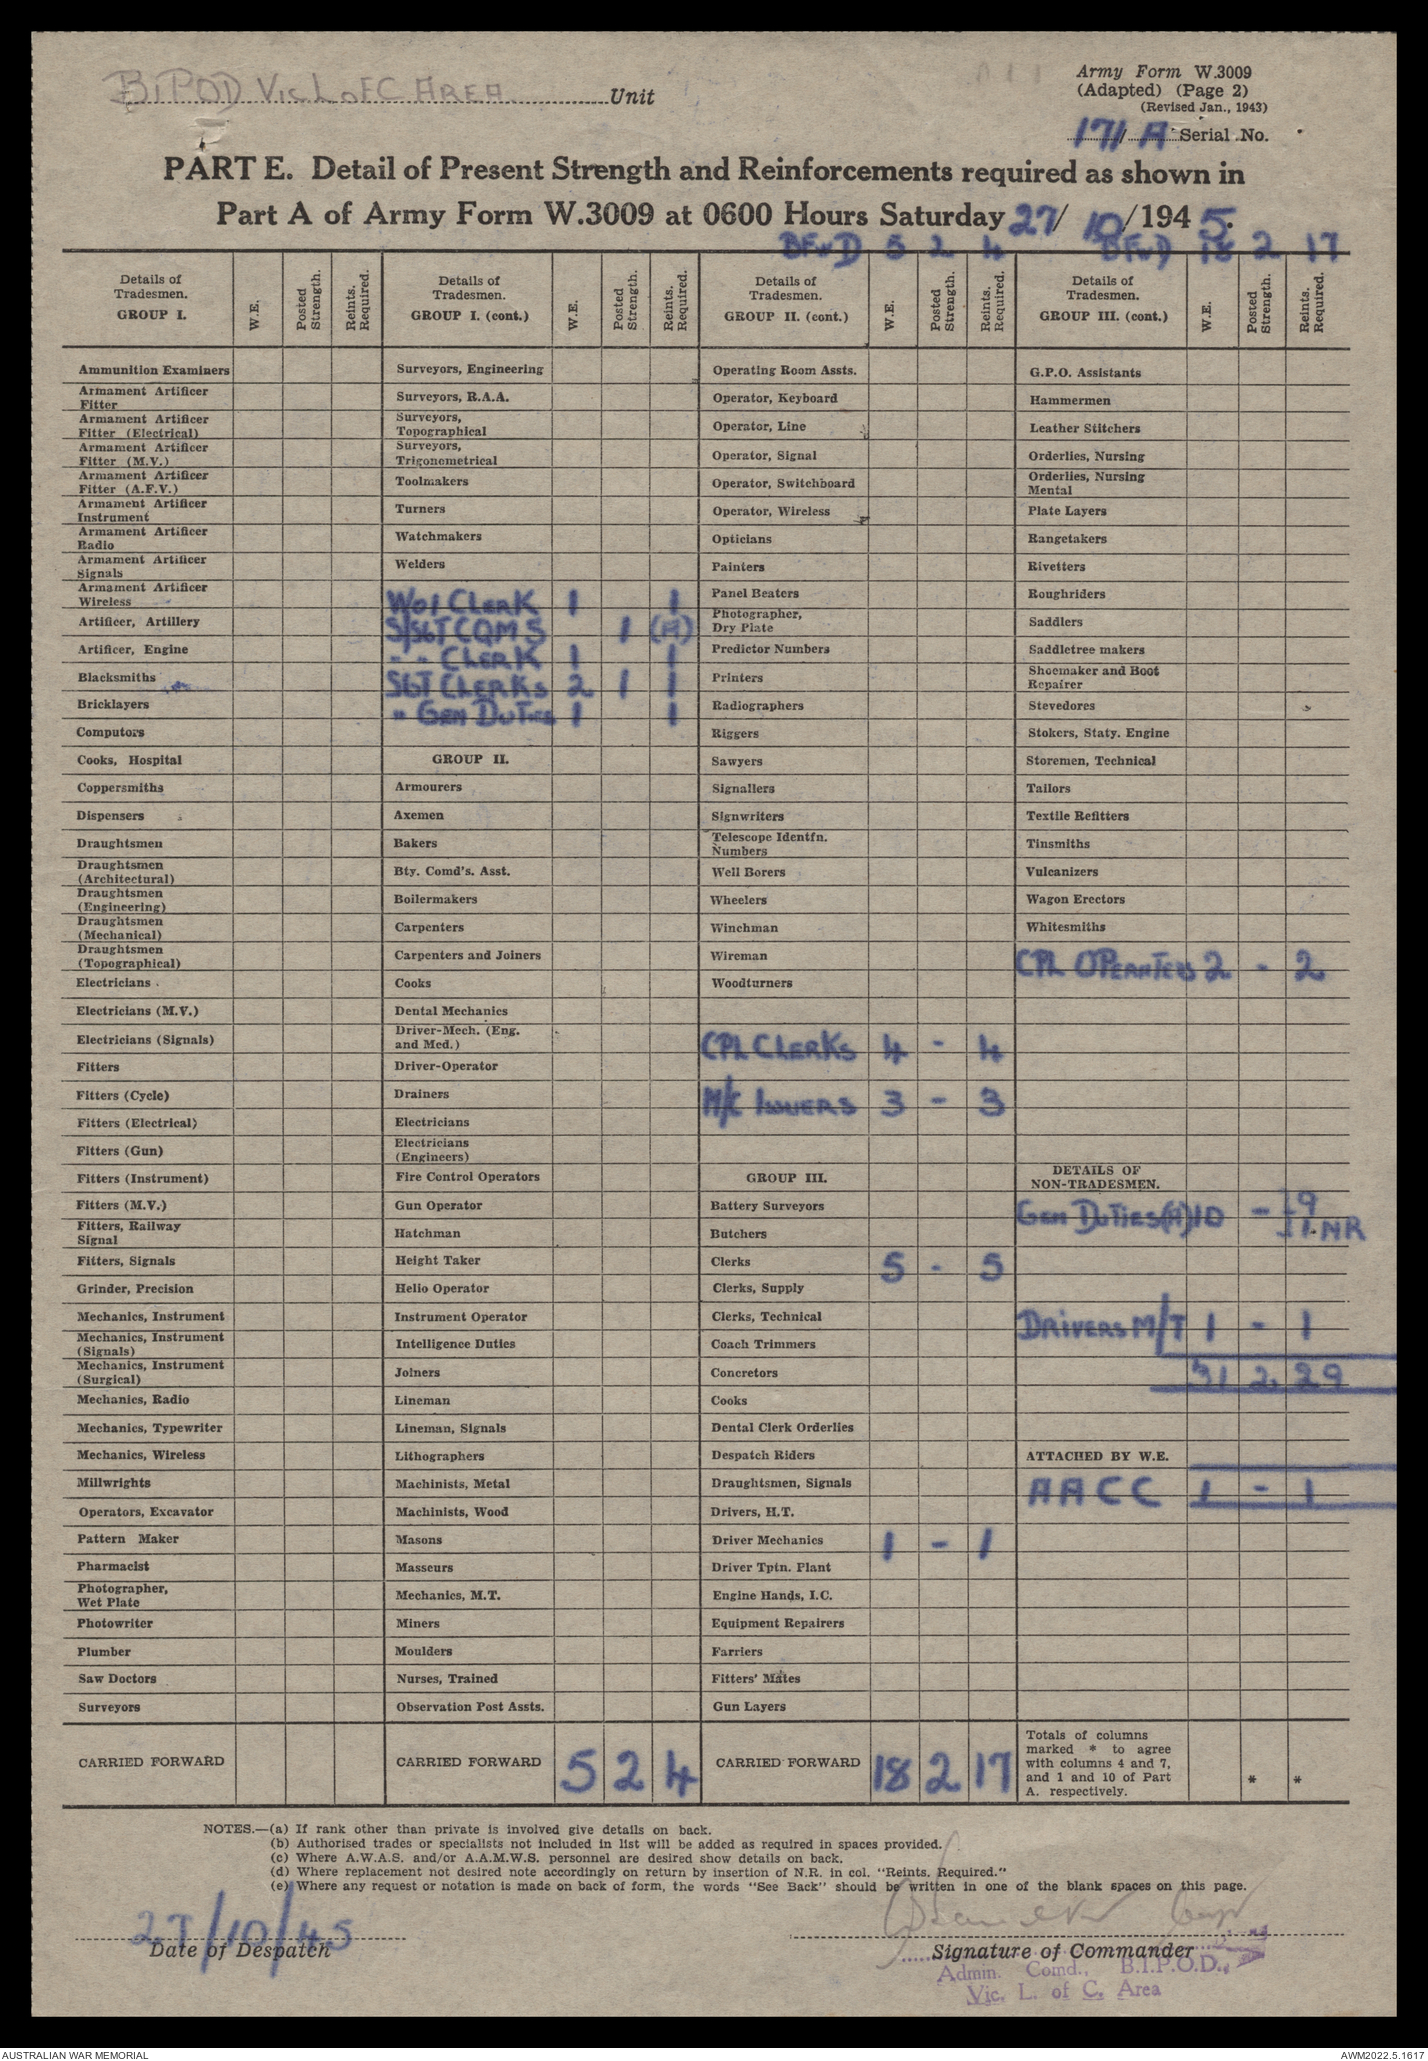 BIPOD Vic L of C AREA Unit
Army Form W.3009
(Adapted) (Page 2)
(Revised Jan., 1943)
171/A Serial No.
PART E. Detail of Present Strength and Reinforcements required as shown in
Part A of Army Form W.3009 at 0600 Hours Saturday 27/10/1945.
BFWD 5 2 4 BFWD 18 2 17
Details of Tradesmen. GROUP I. W.E. Posted Strength. Reints. Required.
Ammunition Examiners
Armament Artificer Fitter
Armament Artificer Fitter (Electrical)
Armament Artificer Fitter (M.V.)
Armament Artificer Fitter (A.F.V.)
Armament Artificer Instrument
Armament Artificer Radio
Armament Artificer Signals
Armament Artificer Wireless
Artificer, Artillery
Artificer, Engine
Blacksmiths
Bricklayers
Computors
Cooks, Hospital
Coppersmiths
Dispensers
Draughtsmen
Draughtsmen (Architectural)
Draughtsmen (Engineering)
Draughtsmen (Mechanical)
Draughtsmen (Topographical)
Electricians
Electricians (M.V.)
Electricians (Signals)
Fitters
Fitters (Cycle)
Fitters (Electrical)
Fitters (Gun)
Fitters (Instrument)
Fitters (M.V.)
Fitters, Railway Signal
Fitters, Signals
Grinder, Precision
Mechanics, Instrument
Mechanics, Instrument (Signals)
Mechanics, Instrument (Surgical)
Mechanics, Radio
Mechanics, Typewriter
Mechanics, Wireless
Millwrights
Operators, Excavator
Pattern Maker
Pharmacist
Photographer, Wet Plate
Photowriter
Plumber
Saw Doctors
Surveyors
CARRIED FORWARD
Details of Tradesmen. GROUP I. (cont.) W.E. Posted Strength. Reints. Required.
Surveyors, Engineering
Surveyors, R.A.A.
Surveyors, Topographical
Surveyors, Trigonometrical
Toolmakers
Turners
Watchmakers
Welders
WO1 CLERK 1 1
S/SGT CQMS 1 (A)
" " CLERK 1 1
SGT CLERKS 2 1 1
" GEN DUTIES 1 1
GROUP II.
Armourers
Axemen
Bakers
Bty. Comd's. Asst.
Boilermakers
Carpenters
Carpenters and Joiners
Cooks
Dental Mechanics
Driver-Mech. (Eng. and Med.)
Driver-Operator
Drainers
Electricians
Electricians (Engineers)
Fire Control Operators
Gun Operator
Hatchman
Height Taker
Helio Operator
Instrument Operator
Intelligence Duties
Joiners
Lineman
Lineman, Signals
Lithographers
Machinists, Metal
Machinists, Wood
Masons
Masseurs
Mechanics, M.T.
Miners
Moulders
Nurses, Trained
Observation Post Assts.
CARRIED FORWARD 5 2 4
Details of Tradesmen. GROUP II. (cont.) W.E. Posted Strength. Reints. Required.
Operating Room Assts.
Operator, Keyboard
Operator, Line
Operator, Signal
Operator, Switchboard
Operator, Wireless
Opticians
Painters
Panel Beaters
Photographer, Dry Plate
Predictor Numbers
Printers
Radiographers
Riggers
Sawyers
Signallers
Signwriters
Telescope Identfn. Numbers
Well Borers
Wheelers
Winchman
Wireman
Woodturners
CPL CLERKS 4 - 4
M/C ISSUERS 3 - 3
GROUP III.
Battery Surveyors
Butchers
Clerks 5 - 5
Clerks, Supply
Clerks, Technical
Coach Trimmers
Concretors
Cooks
Dental Clerk Orderlies
Despatch Riders
Draughtsmen, Signals
Drivers, H.T.
Driver Mechanics 1 - 1
Driver Tptn. Plant
Engine Hands, I.C.
Equipment Repairers
Farriers
Fitters' Mates
Gun Layers
CARRIED FORWARD 18 2 17
Details of Tradesmen. GROUP III. (cont.) W.E. Posted Strength. Reints. Required.
G.P.O. Assistants
Hammermen
Leather Stitchers
Orderlies, Nursing
Orderlies, Nursing Mental
Plate Layers
Rangetakers
Rivetters
Roughriders
Saddlers
Saddletree makers
Shoemaker and Boot Repairer
Stevedores
Stokers, Staty. Engine
Storemen, Technical
Tailors
Textile Refitters
Tinsmiths
Vulcanizers
Wagon Erectors
Whitesmiths
CPL OPERATERS 2 - 2
DETAILS OF NON-TRADESMEN.
GEN DUTIES (A) 10 - 9
1.NR
DRIVERS M/T 1 - 1
31 2. 29
ATTACHED BY W.E.
AACC 1 - 1
Totals of columns marked * to agree with columns 4 and 7, and 1 and 10 of Part A. respectively. * *
NOTES.—(a) If rank other than private is involved give details on back.
(b) Authorised trades or specialists not included in list will be added as required in spaces provided.
(c) Where A.W.A.S. and/or A.A.M.W.S. personnel are desired show details on back.
(d) Where replacement not desired note accordingly on return by insertion of N.R. in col. "Reints. Required."
(e) Where any request or notation is made on back of form, the words "See Back" should be written in one of the blank spaces on this page.
27/10/45
Date of Despatch
Capt
Signature of Commander
Admin. Comd., B.I.P.O.D.,
Vic. L. of C. Area
AUSTRALIAN WAR MEMORIAL
AWM2022.5.1617